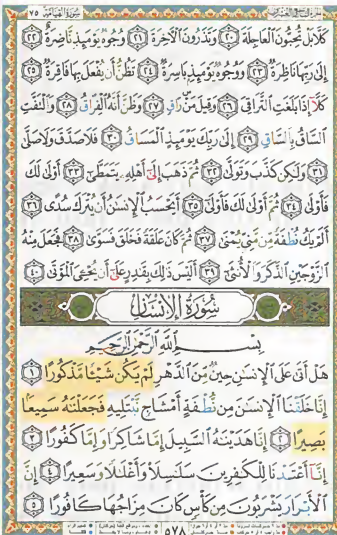 سورة القيامة ٧٥
كَلَّا بَلْ تُحِبُّونَ ٱلْعَاجِلَةَ ٢٠ وَتَذَرُونَ ٱلْآخِرَةَ ٢١ وُجُوهٌ يَوْمَئِذٍ نَّاضِرَةٌ ٢٢
إِلَىٰ رَبِّهَا نَاظِرَةٌ ٢٣ وَوُجُوهٌ يَوْمَئِذٍۭ بَاسِرَةٌ ٢٤ تَظُنُّ أَن يُفْعَلَ بِهَا فَاقِرَةٌ ٢٥
كَلَّآ إِذَا بَلَغَتِ ٱلتَّرَاقِىَ ٢٦ وَقِيلَ مَنْ رَاقٍ ٢٧ وَظَنَّ أَنَّهُ ٱلْفِرَاقُ ٢٨ وَٱلْتَفَّتِ
ٱلسَّاقُ بِٱلسَّاقِ ٢٩ إِلَىٰ رَبِّكَ يَوْمَئِذٍ ٱلْمَسَاقُ ٣٠ فَلَا صَدَّقَ وَلَا صَلَّىٰ
٣١ وَلَٰكِن كَذَّبَ وَتَوَلَّىٰ ٣٢ ثُمَّ ذَهَبَ إِلَىٰٓ أَهْلِهِۦ يَتَمَطَّىٰٓ ٣٣ أَوْلَىٰ لَكَ
فَأَوْلَىٰ ٣٤ ثُمَّ أَوْلَىٰ لَكَ فَأَوْلَىٰٓ ٣٥ أَيَحْسَبُ ٱلْإِنسَٰنُ أَن يُتْرَكَ سُدًى ٣٦
أَلَمْ يَكُ نُطْفَةً مِّن مَّنِىٍّ يُمْنَىٰ ٣٧ ثُمَّ كَانَ عَلَقَةً فَخَلَقَ فَسَوَّىٰ ٣٨ فَجَعَلَ مِنْهُ
ٱلزَّوْجَيْنِ ٱلذَّكَرَ وَٱلْأُنثَىٰٓ ٣٩ أَلَيْسَ ذَٰلِكَ بِقَٰدِرٍ عَلَىٰٓ أَن يُحْـِۧىَ ٱلْمَوْتَىٰ ٤٠
سُورَةُ الإِنسَان
بِسْمِ ٱللَّهِ ٱلرَّحْمَٰنِ ٱلرَّحِيمِ
هَلْ أَتَىٰ عَلَى ٱلْإِنسَٰنِ حِينٌ مِّنَ ٱلدَّهْرِ لَمْ يَكُن شَيْـًٔا مَّذْكُورًا ١
إِنَّا خَلَقْنَا ٱلْإِنسَٰنَ مِن نُّطْفَةٍ أَمْشَاجٍ نَّبْتَلِيهِ فَجَعَلْنَٰهُ سَمِيعًۢا
بَصِيرًا ٢ إِنَّا هَدَيْنَٰهُ ٱلسَّبِيلَ إِمَّا شَاكِرًا وَإِمَّا كَفُورًا ٣
إِنَّآ أَعْتَدْنَا لِلْكَٰفِرِينَ سَلَٰسِلَا۟ وَأَغْلَٰلًا وَسَعِيرًا ٤ إِنَّ
ٱلْأَبْرَارَ يَشْرَبُونَ مِن كَأْسٍ كَانَ مِزَاجُهَا كَافُورًا ٥
٥٧٨